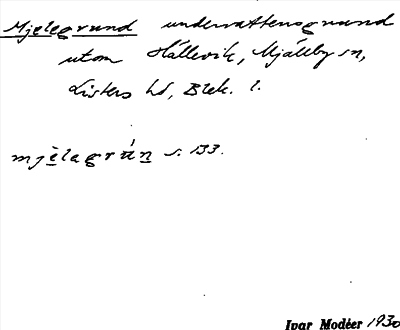 Mjelegrund undervattensgrund
utom Hällevik, Mjällby sn,
Listers hd, Blek. l.
mjèlagrán s. 133.
Ivar Modéer 1930